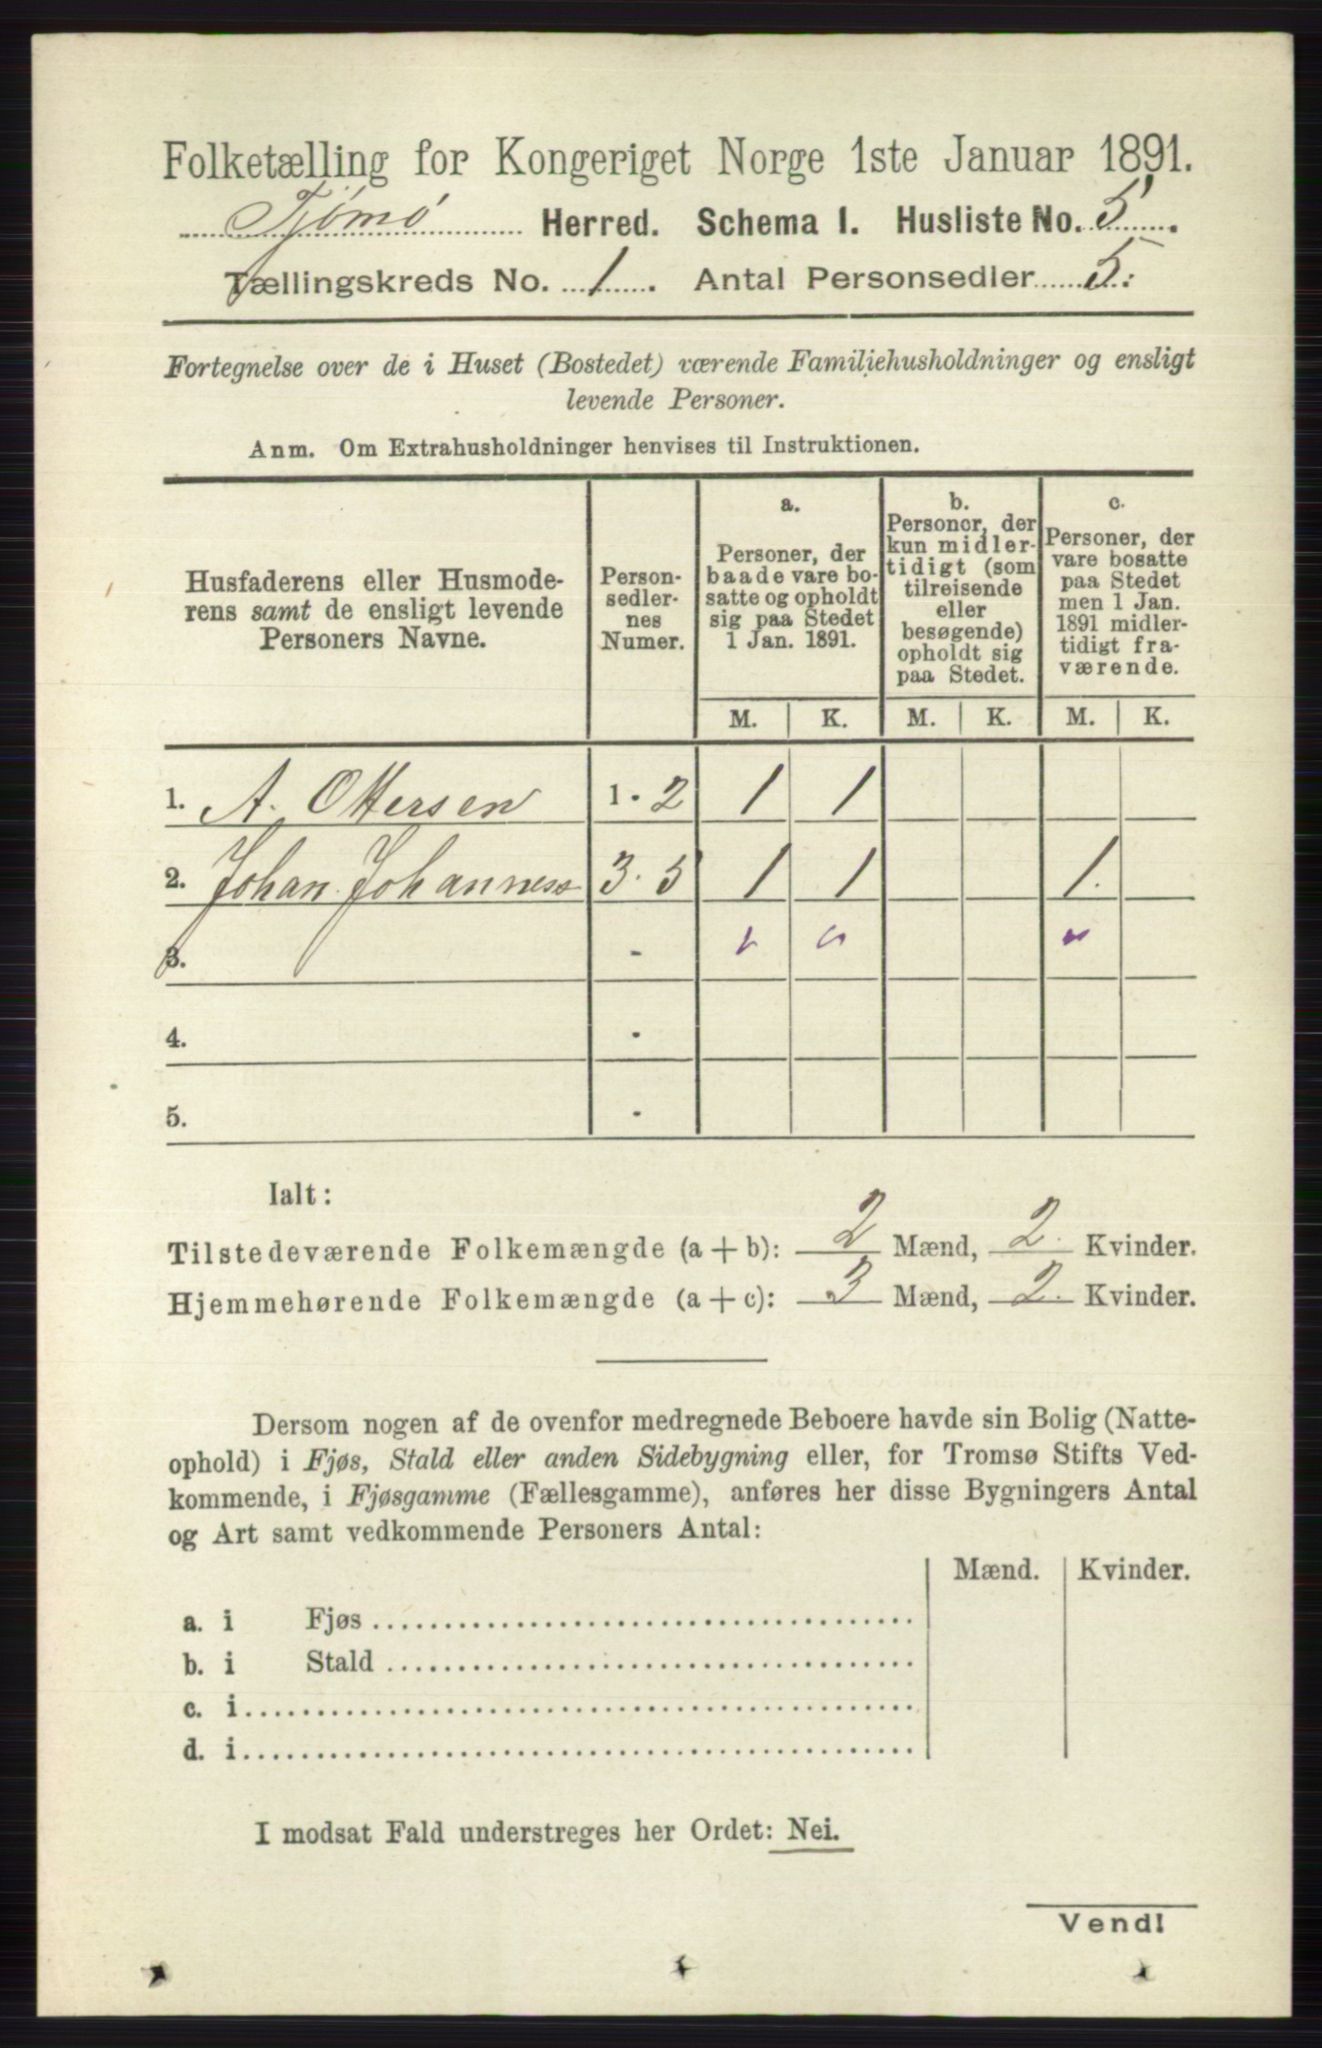 Folketælling for Kongeriget Norge 1ste Januar 1891.
Tjömö Herred. Schema I. Husliste No. 5
Tællingskreds No. 1. Antal Personsedler 5.
Fortegnelse over de i Huset (Bostedet) værende Familiehusholdninger og ensligt
levende Personer.
Anm. Om Extrahusholdninger henvises til Instruktionen.
Husfaderens eller Husmode-
rens samt de ensligt levende
Personers Navne.
Person-
sedler-
nes
Numer.
a.
Personer, der
baade vare bo-
satte og opholdt
sig paa Stedet
1 Jan. 1891.
b.
Personer, der
kun midler-
tidigt (som
tilreisende
eller
besøgende)
opholdt sig
paa Stedet.
c.
Personer, der
vare bosatte
paa Stedet
men 1 Jan.
1891 midler-
tidigt fra-
værende.
M. K. M. K. M. K.
1. A. Ottersen 1 - 2 1 1
2. Johan Johanness 3 - 5 1 1 1.
3. -
4. -
5. -
Ialt:
Tilstedeværende Folkemængde (a + b): 2 Mænd, 2. Kvinder.
Hjemmehørende Folkemængde (a + c): 3 Mænd, 2. Kvinder.
Dersom nogen af de ovenfor medregnede Beboere havde sin Bolig (Natte-
ophold) i Fjøs, Stald eller anden Sidebygning eller, for Tromsø Stifts Ved-
kommende, i Fjøsgamme (Fællesgamme), anføres her disse Bygningers Antal
og Art samt vedkommende Personers Antal:
Mænd. Kvinder.
a. i Fjøs
b. i Stald
c. i
d. i
I modsat Fald understreges her Ordet: Nei.
Vend!